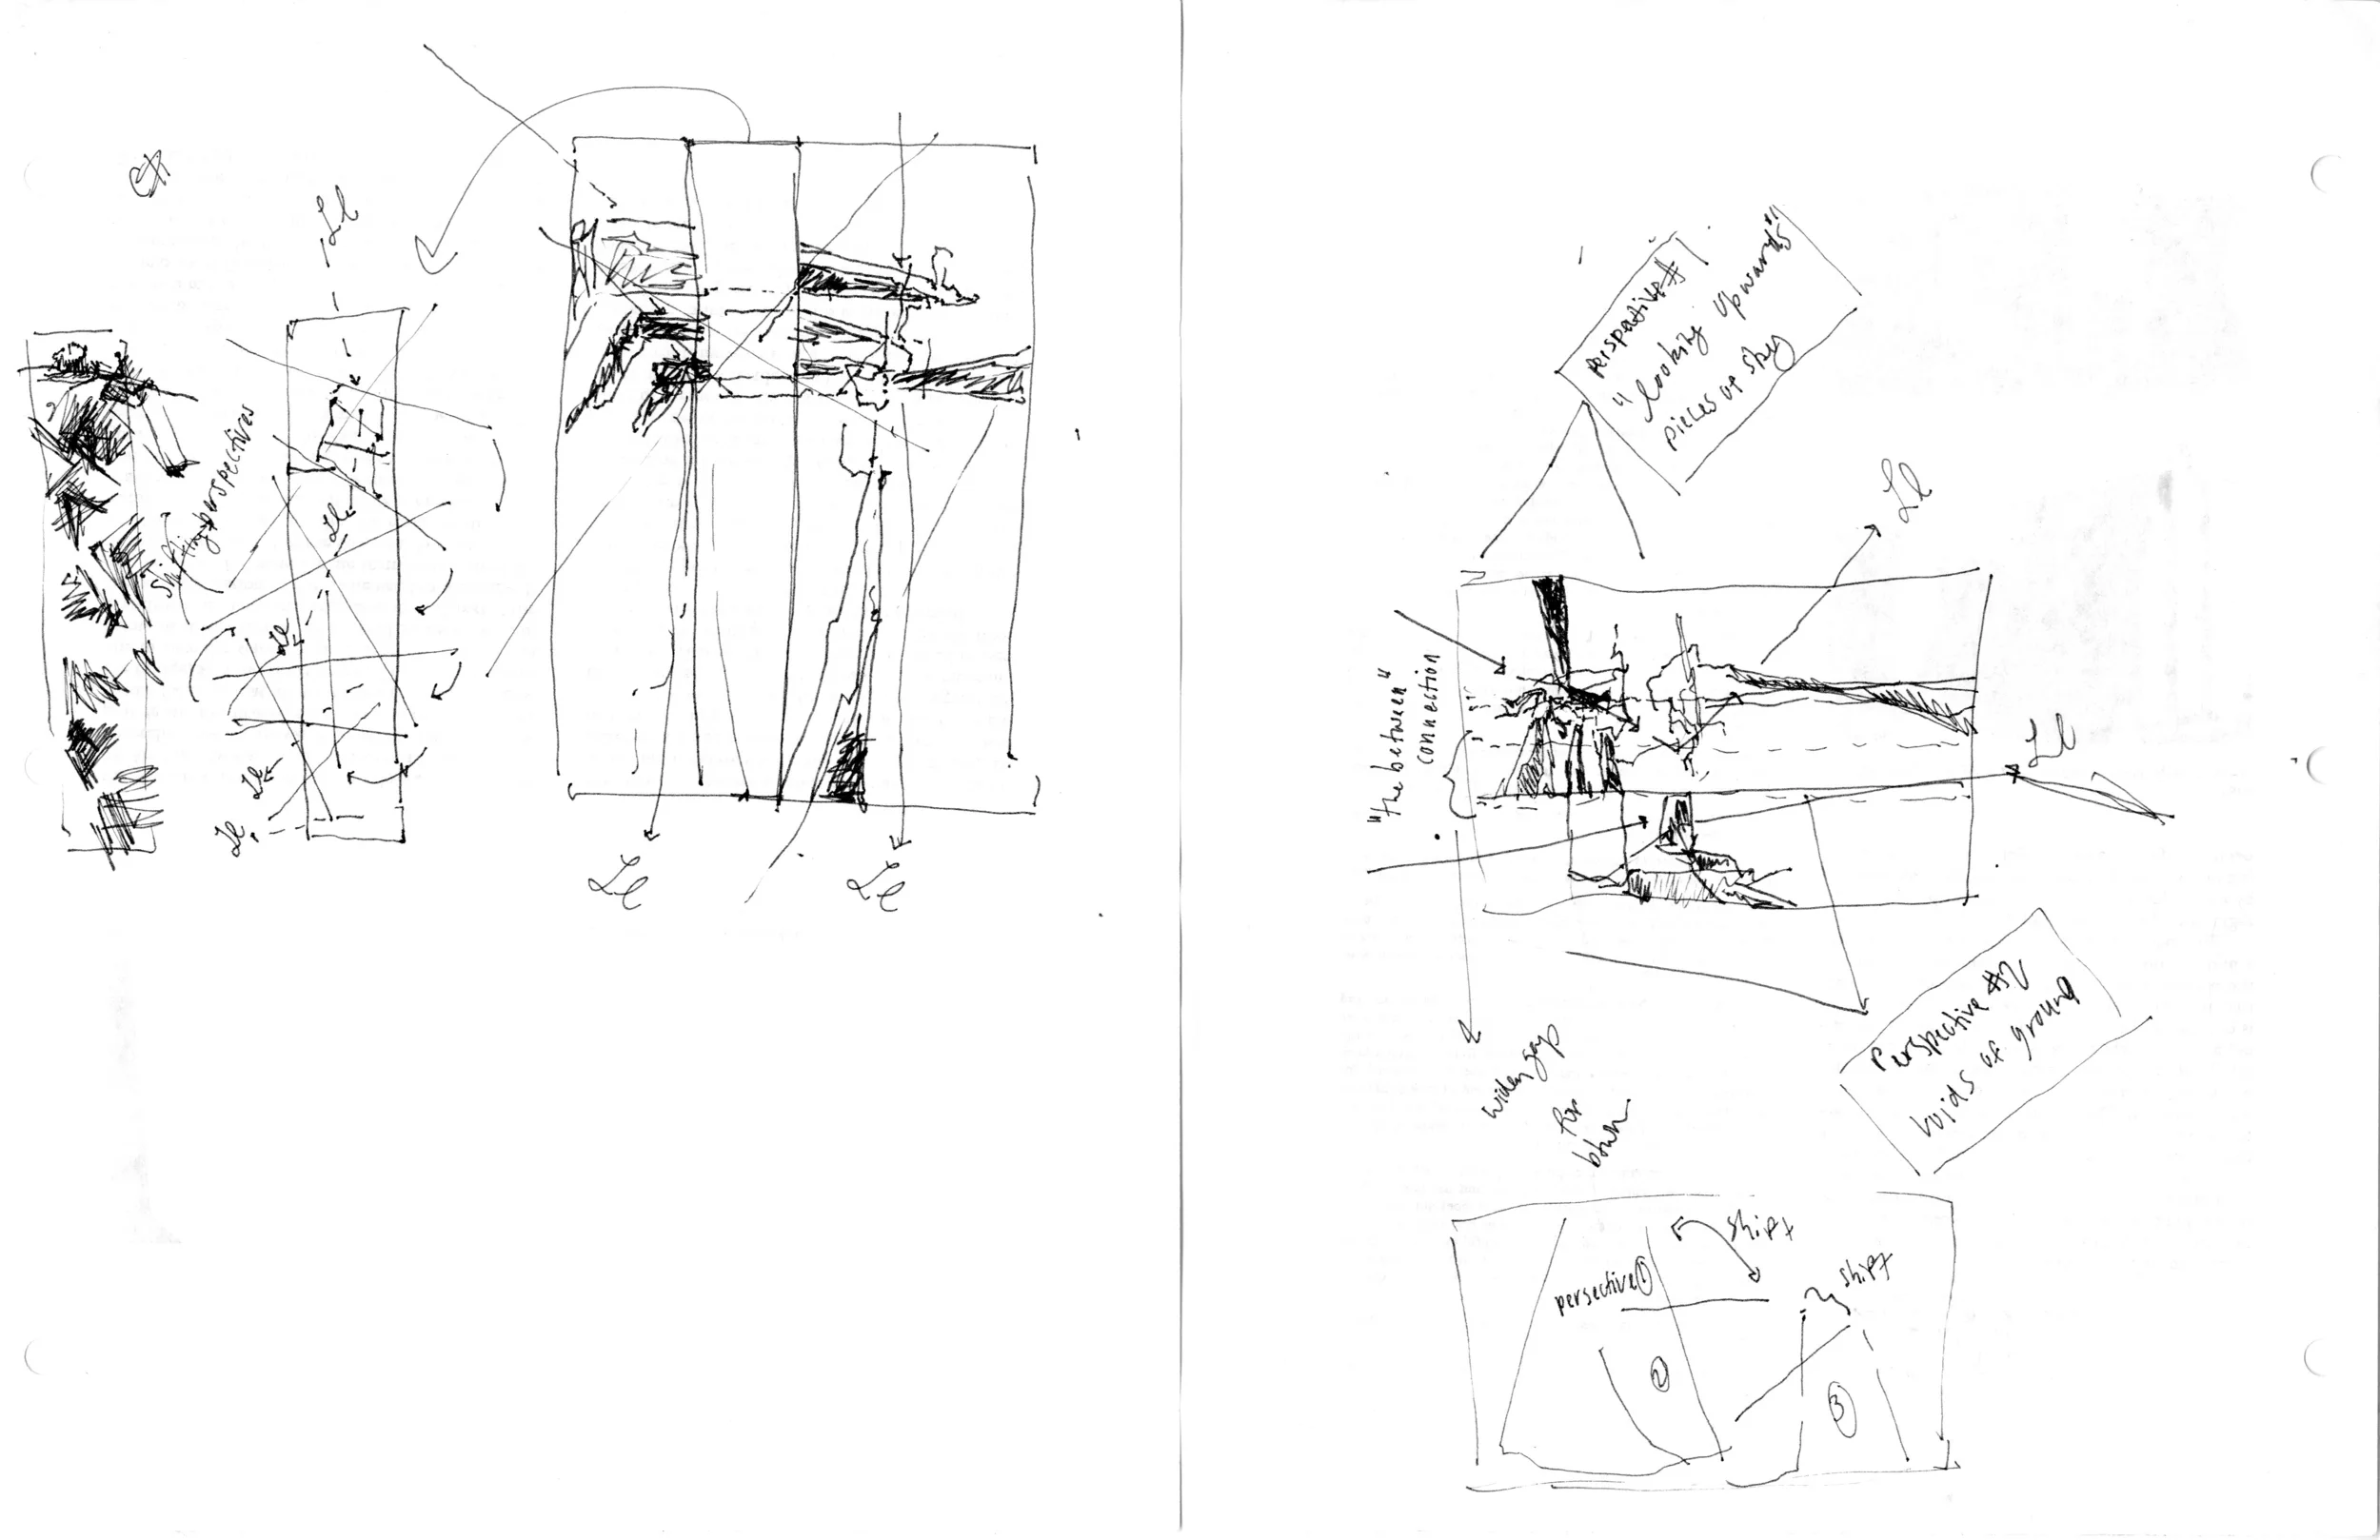 shifting perspectives
Perspective #1
"looking upwards"
pieces of sky
"the between"
connection
Perspective #2
voids of ground
widen gap
for
btwn
shift
shift
persective ①
②
③